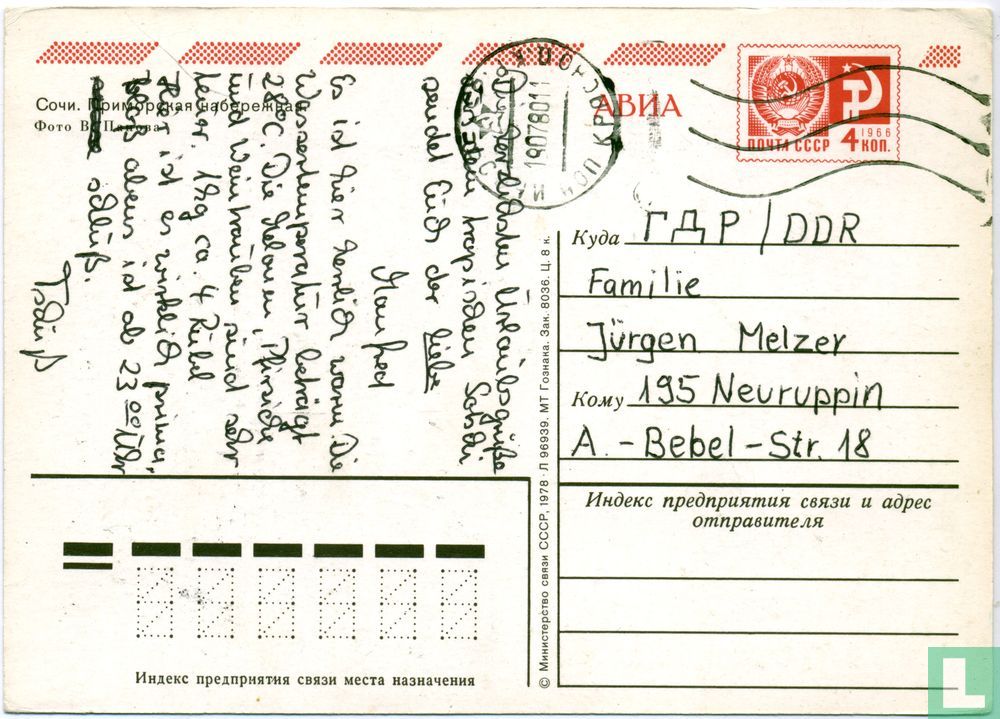 Сочи. Приморская набережная.
Фото В. Панова
АВИА
ПОЧТА СССР
4 КОП.
1966
19078011
Die herzlichsten Urlaubsgrüße
aus dem tropischen Sotschi
sendet Euch der liebe
Manfred
Es ist hier herrlich warm. Die
Wassertemperatur beträgt
28°C. Die Melonen, Pfirsiche
und Weintrauben sind sehr
1kg ca. 4 Rubel
Hier ist es wirklich prima,
abens ist ab 23 00 Uhr
Schluß.
Tschüß
Куда ГДР / DDR
Familie
Jürgen Melzer
Кому 195 Neuruppin
A. - Bebel - Str. 18
Индекс предприятия связи и адрес
отправителя
Индекс предприятия связи места назначения
© Министерство связи СССР, 1978 · Л 96939. МТ Гознака. Зак. 8036. Ц. 8 к.
L